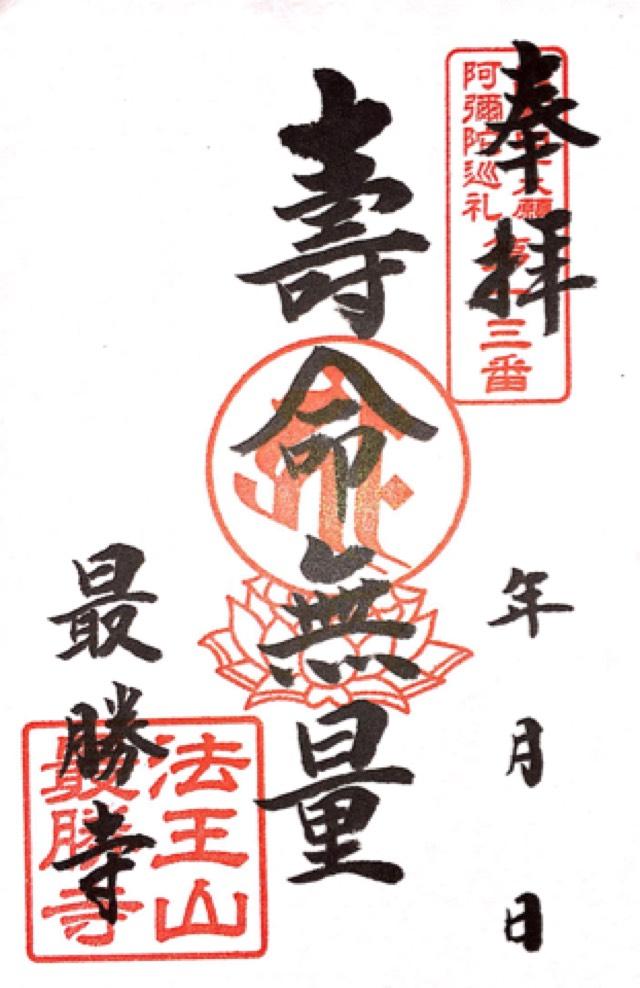 奉拝
大願 三番
阿彌陀巡礼
年 月 日
壽命無量
最勝寺
法王山
最勝寺